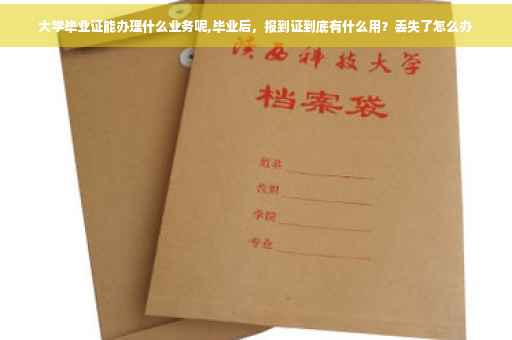 大学毕业证能办理什么业务呢,毕业后，报到证到底有什么用？丢失了怎么办
陕西科技大学
档案袋
学院
专业